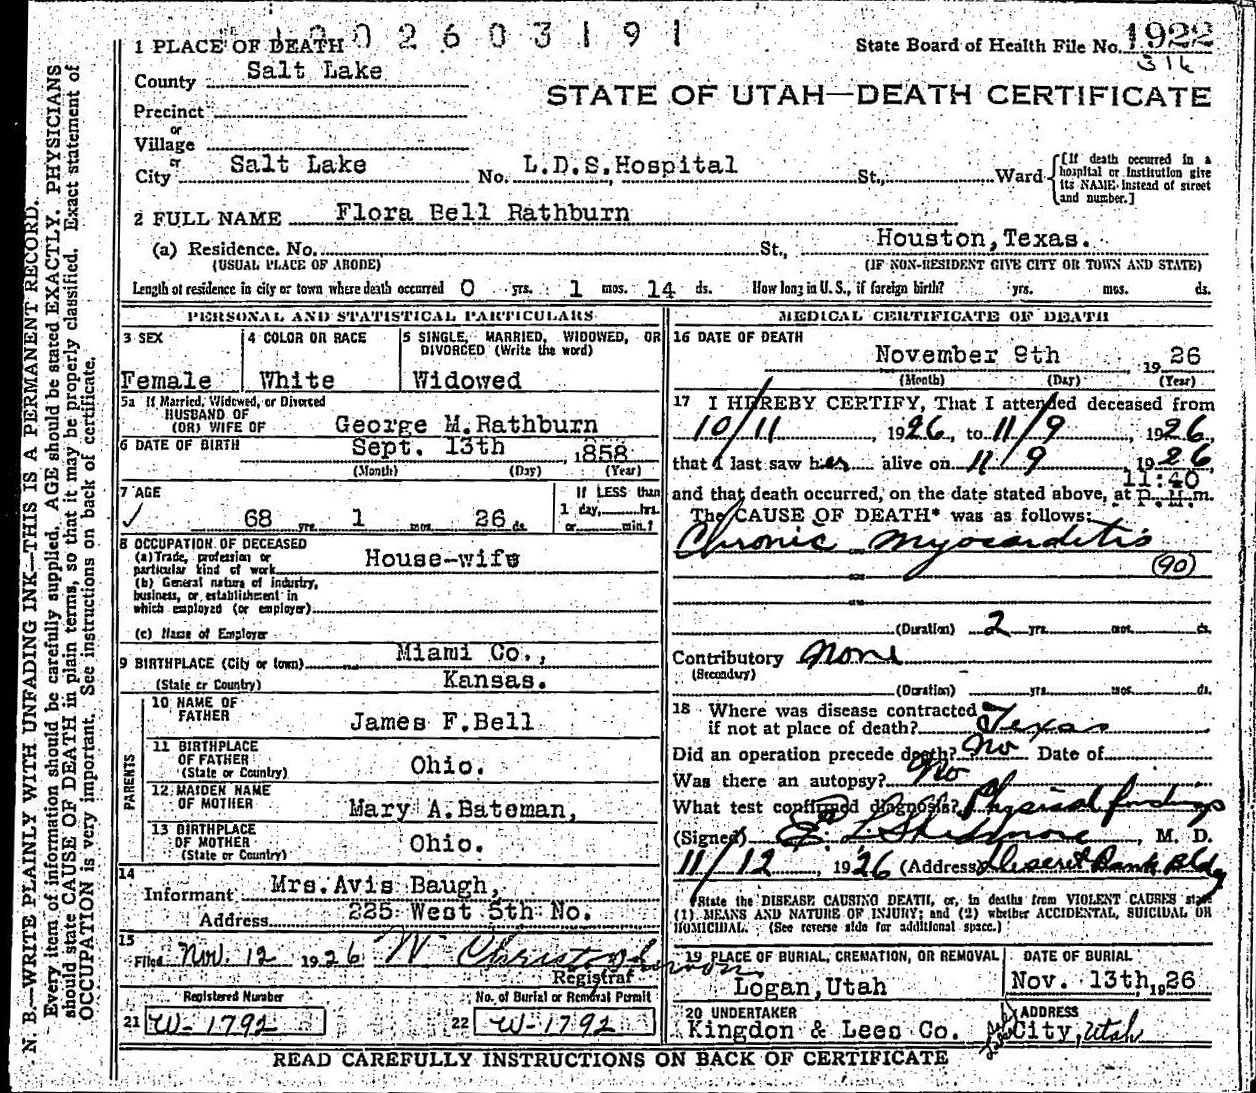 1002603191
1 PLACE OF DEATH
State Board of Health File No. 1922
316
County Salt Lake
STATE OF UTAH—DEATH CERTIFICATE
Precinct
or
Village
or
City Salt Lake No. L.D.S. Hospital St., Ward
[If death occurred in a hospital or institution give its NAME instead of street and number.]
2 FULL NAME Flora Bell Rathburn
(a) Residence. No. St., Houston, Texas.
(USUAL PLACE OF ABODE) (IF NON-RESIDENT GIVE CITY OR TOWN AND STATE)
Length of residence in city or town where death occurred 0 yrs. 1 mos. 14 ds. How long in U. S., if foreign birth? yrs. mos. ds.
PERSONAL AND STATISTICAL PARTICULARS
3 SEX
Female
4 COLOR OR RACE
White
5 SINGLE, MARRIED, WIDOWED, OR
DIVORCED (Write the word)
Widowed
5a If Married, Widowed, or Divorced
HUSBAND OF
(OR) WIFE OF George M. Rathburn
6 DATE OF BIRTH Sept. 13th, 1858
(Month) (Day) (Year)
7 AGE
68 yrs. 1 mos. 26 ds.
If LESS than
1 day, hrs.
or min.?
8 OCCUPATION OF DECEASED
(a) Trade, profession or
particular kind of work House-wife
(b) General nature of industry,
business, or establishment in
which employed (or employer)
(c) Name of Employer
9 BIRTHPLACE (City or town) Miami Co.,
(State or Country) Kansas.
PARENTS
10 NAME OF
FATHER James F. Bell
11 BIRTHPLACE
OF FATHER
(State or Country) Ohio.
12 MAIDEN NAME
OF MOTHER Mary A. Bateman,
13 BIRTHPLACE
OF MOTHER
(State or Country) Ohio.
14
Informant Mrs. Avis Baugh,
Address 225 West 5th No.
15
Filed Nov. 12 1926 W Christopherson
Registrar
Registered Number No. of Burial or Removal Permit
21 W-1792 22 W-1792
MEDICAL CERTIFICATE OF DEATH
16 DATE OF DEATH
November 9th 1926
(Month) (Day) (Year)
17 I HEREBY CERTIFY, That I attended deceased from
10/11, 1926, to 11/9, 1926,
that I last saw her alive on 11/9, 1926
11:40
and that death occurred, on the date stated above, at P.M. m.
The CAUSE OF DEATH* was as follows:
Chronic myocarditis
(90)
(Duration) 2 yrs. mos. ds.
Contributory None
(Secondary)
(Duration) yrs. mos. ds.
18 Where was disease contracted
if not at place of death? Texas
Did an operation precede death? No Date of
Was there an autopsy? No
What test confirmed diagnosis? Physical findings
(Signed) E. L. Skidmore, M. D.
11/12, 1926 (Address) Deseret Bank Bldg
*State the DISEASE CAUSING DEATH, or, in deaths from VIOLENT CAUSES state
(1) MEANS AND NATURE OF INJURY; and (2) whether ACCIDENTAL, SUICIDAL OR
HOMICIDAL. (See reverse side for additional space.)
19 PLACE OF BURIAL, CREMATION, OR REMOVAL
Logan, Utah
DATE OF BURIAL
Nov. 13th, 1926
20 UNDERTAKER
Kingdon & Lees Co.
ADDRESS
Salt Lake City, Utah
READ CAREFULLY INSTRUCTIONS ON BACK OF CERTIFICATE
N. B.—WRITE PLAINLY WITH UNFADING INK—THIS IS A PERMANENT RECORD.
Every item of information should be carefully supplied. AGE should be stated EXACTLY. PHYSICIANS
should state CAUSE OF DEATH in plain terms, so that it may be properly classified. Exact statement of
OCCUPATION is very important. See instructions on back of certificate.